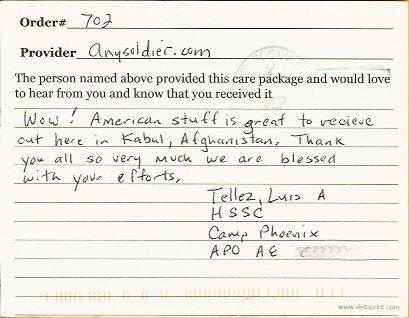 Order# 702
Provider anysoldier.com
The person named above provided this care package and would love
to hear from you and know that you received it
Wow! American stuff is great to recieve
out here in Kabul, Afghanistan, Thank
you all so very much we are blessed
with your efforts,
Tellez, Luis A
HSSC
Camp Phoenix
APO AE
www.vistaprint.com